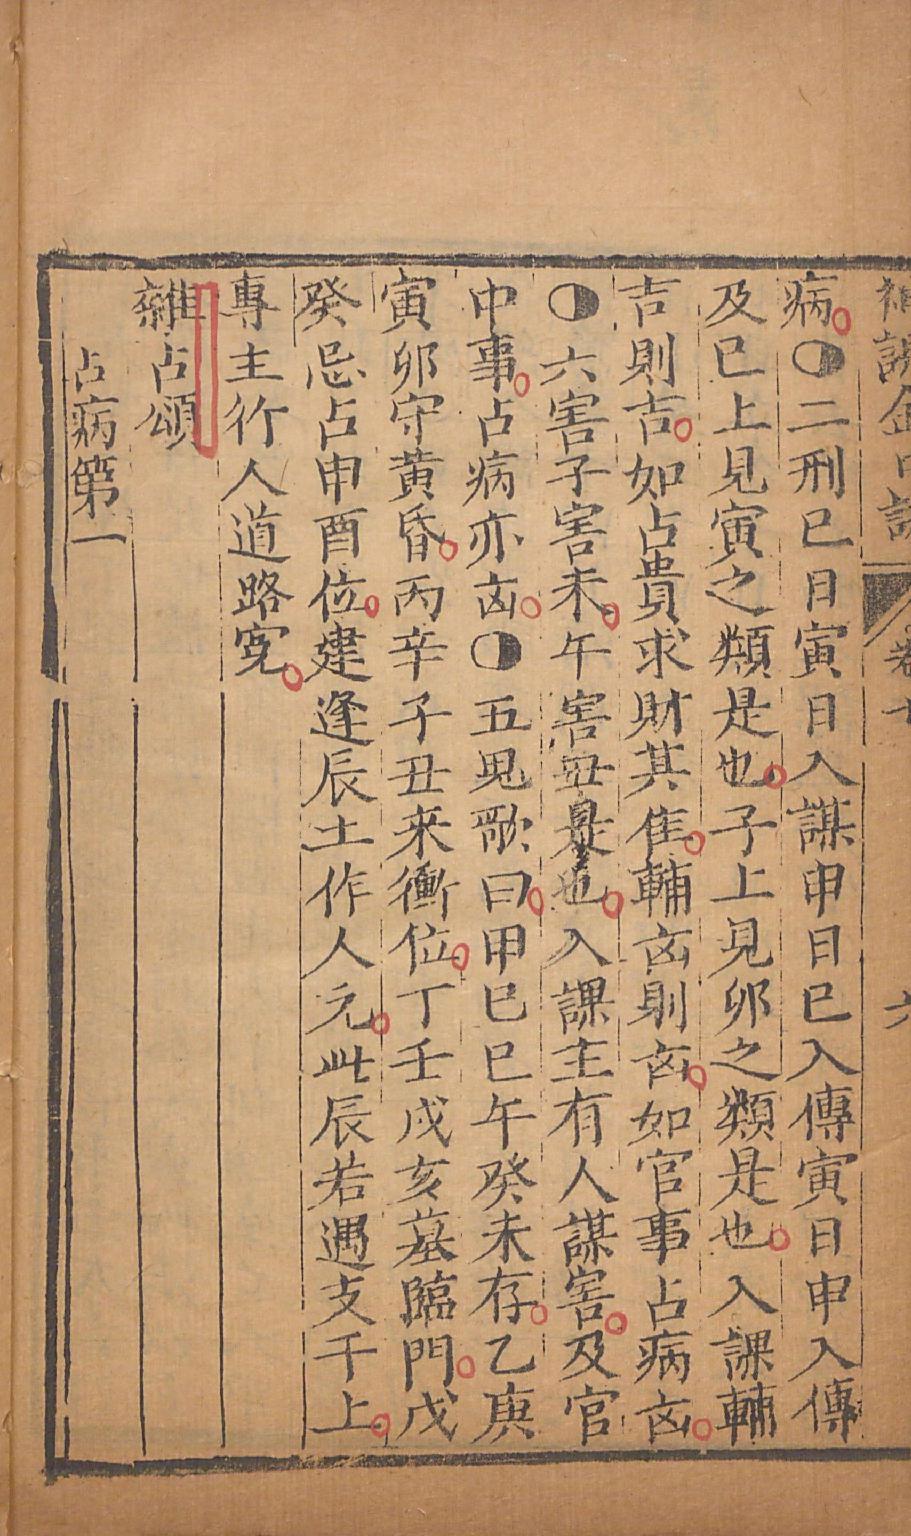 神課金口訣 卷七 六
病◐二刑巳日寅日入謀申日巳入傳寅日申入傳
及巳上見寅之類是也子上見卯之類是也入課輔
吉則吉如占貴求財其隹輔㐫則㐫如官事占病㐫
◐六害子害未午害丑是也入課主有人謀害及官
中事占病亦㐫◐五鬼歌曰甲巳巳午癸未存乙庚
寅卯守黄昏丙辛子丑來衝位丁壬戍亥墓臨門戊
癸忌占申酉位建逢辰土作人元此辰若遇支干上
專主行人道路寃
雜占頌
占病第一